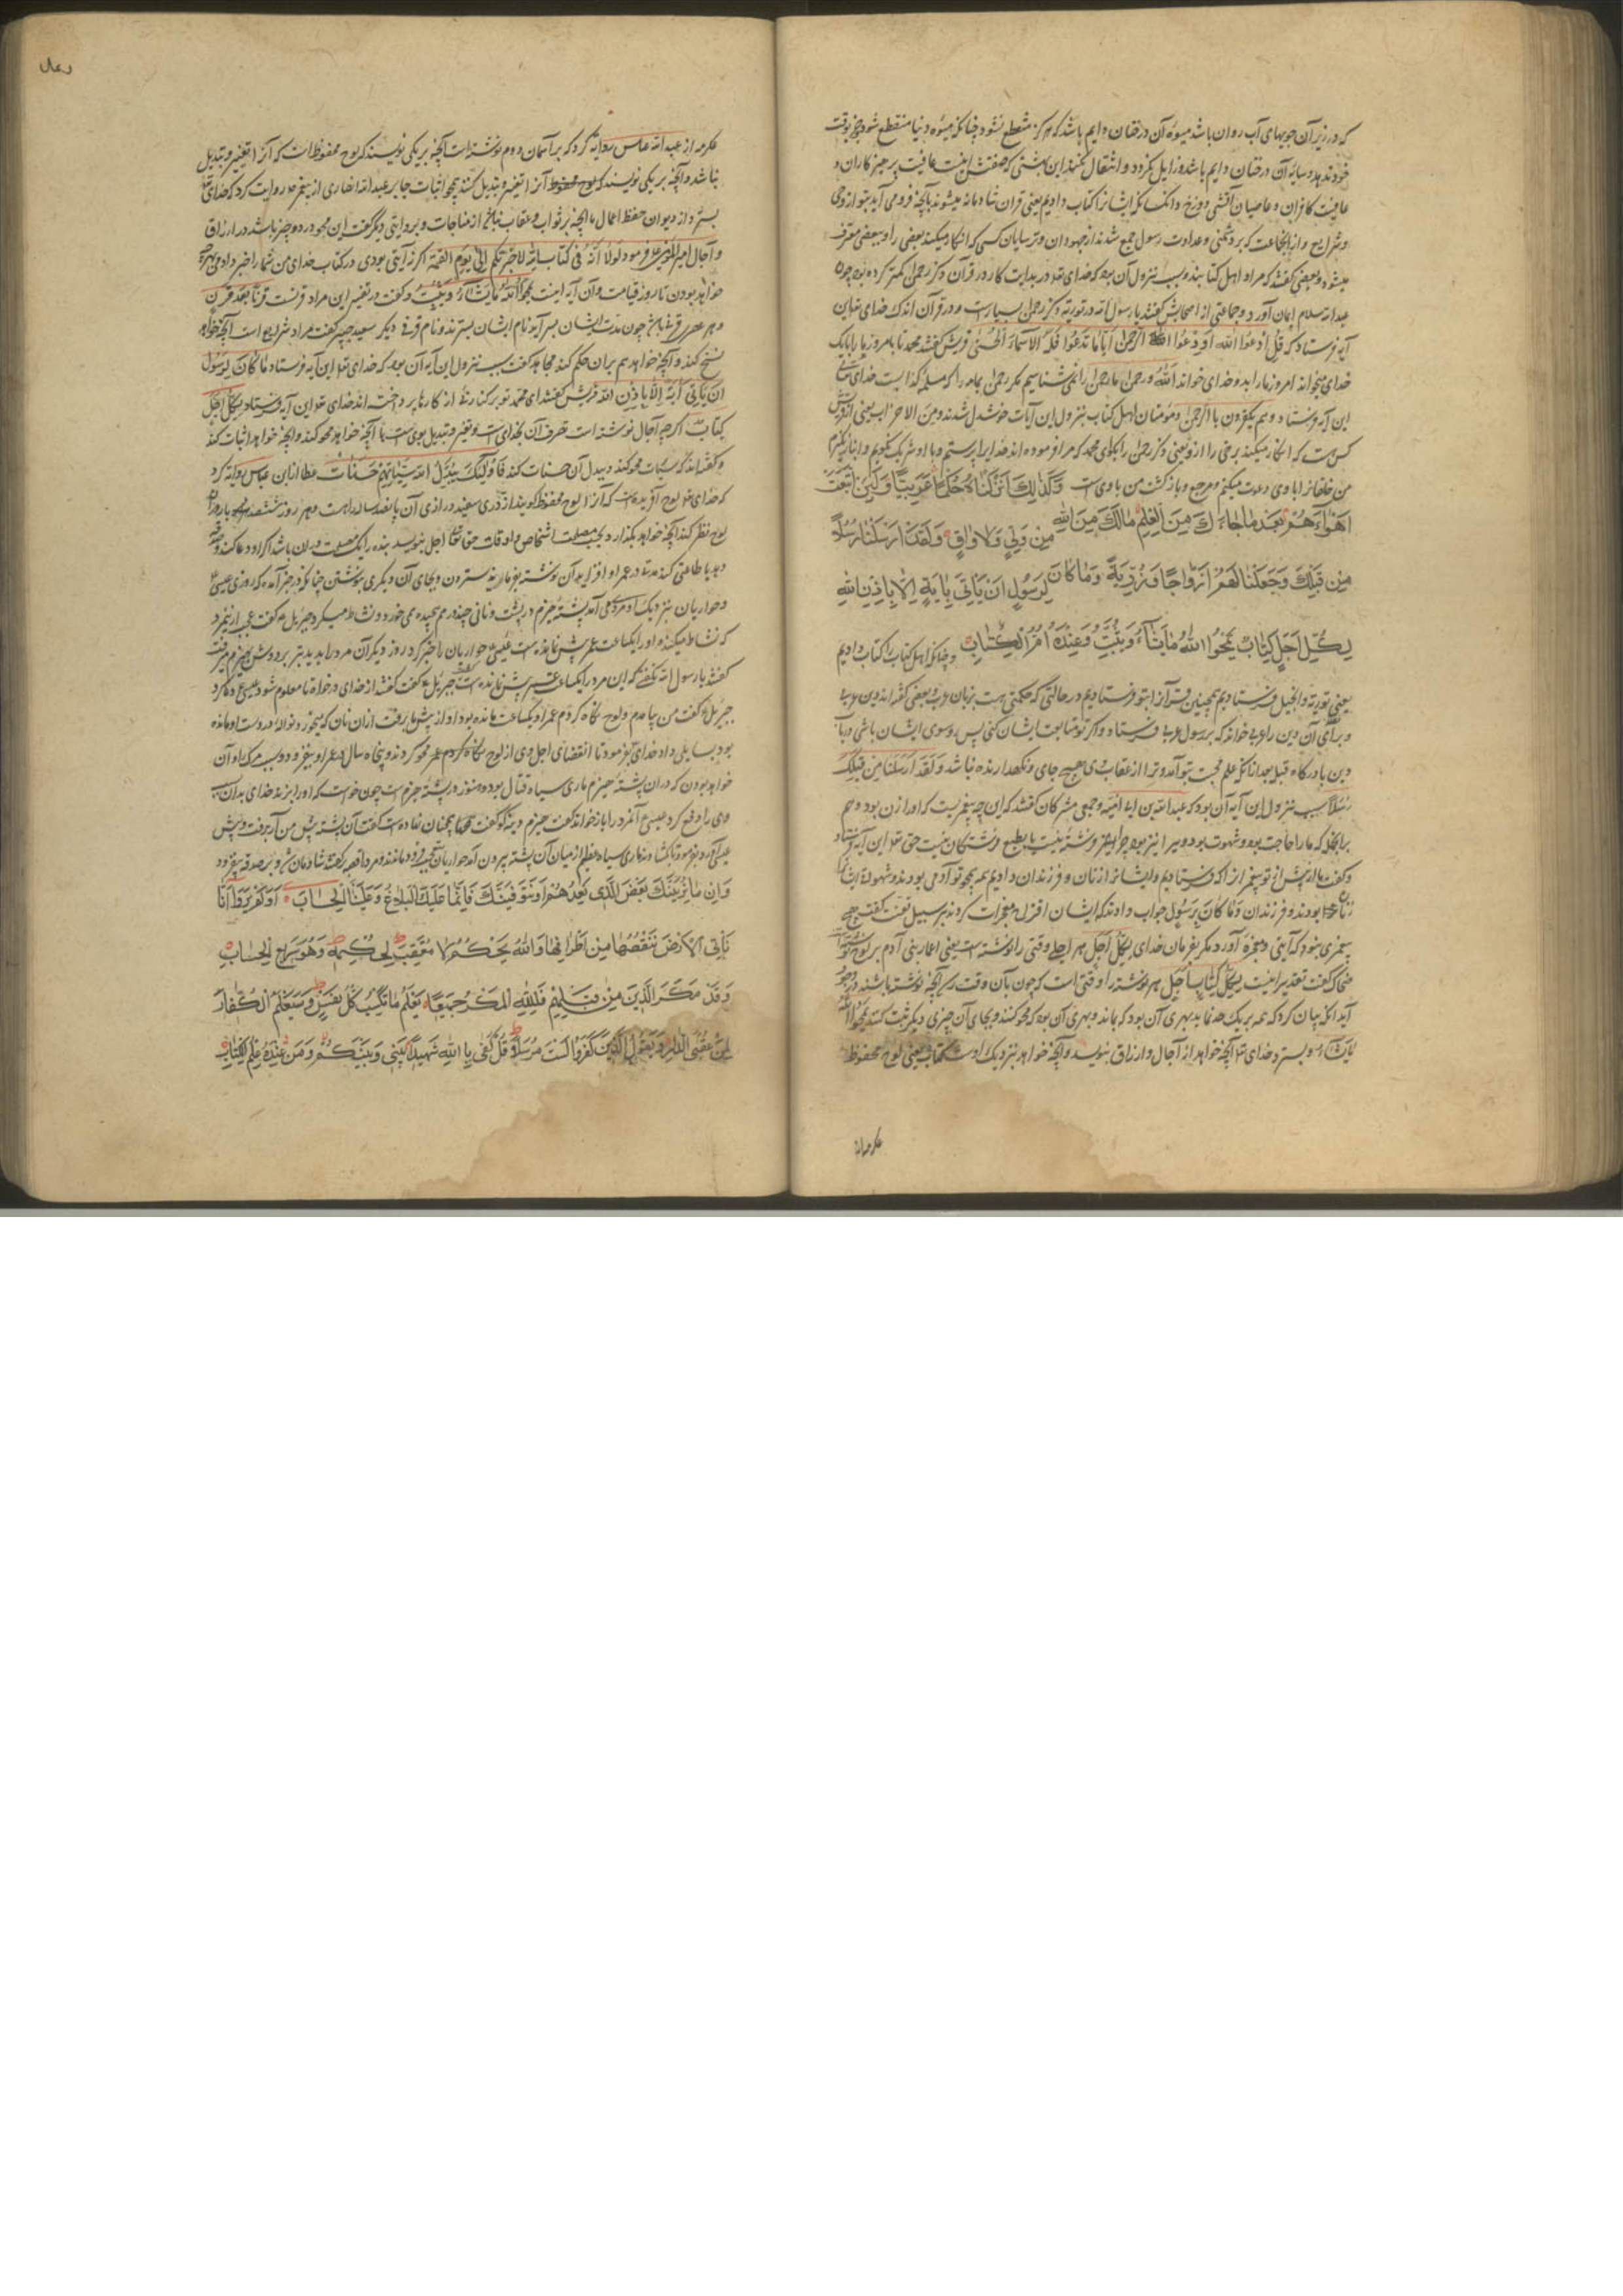 که در زیر آن جویهای آب روان باشد میوه آن درختان دایم باشد که هرگز منقطع نشود چنانکه میوه دنیا منقطع شود هیچ وقت
خود ندهد و سایه آن درختان دایم باشد و زایل نگردد و انتقال نکند این بهشتی که صفتش اینست عاقبت پرهیزکاران و
عاقبت کافران و عاصیان آتش دوزخ و آنکسانکه ایشانرا کتاب دادیم یعنی قران شادمانه میشوند بآنچه فرو می آید بتو از وحی
و شرایع و از جماعت که بر دشمنی و عداوت رسول جمع شدند از جهودان و ترسایان کسی که انکار میکند بعضی را و ببعضی معترف
میشود و بعضی گفتند که مراد اهل کتابند و سبب نزول آن بود که خدای تعالی در بدایت کار در قرآن ذکر رحمن کمتر کرده بود چون
عبدالله سلام ایمان آورد و جماعتی از اصحابش گفتند یا رسول الله در توریة ذکر رحمن بسیارست و در قرآن اندک خدای تعالی این
آیه فرستاد که قُلِ ادْعُوا اللّٰه اَوِ ادْعُوا الرَّحمن اَیّاً ما تَدعُوا فَلَهُ الاَسمآءُ الْحُسْنیٰ قریش گفتند محمد تا بامروز ما را با یک
خدای میخواند امروز ما را بدو خدای خواند اللّٰه و رحمن ما رحمن را نمی شناسیم مگر رحمن یمامه را که مسیلمه کذابست خدای تعالی
این آیه فرستاد و هم یکفرون بالرحمن و مؤمنان اهل کتاب بنزول این آیات خوشدل شدند و من الاحزاب یعنی از قریش
کس هست که انکار میکند برخی را از و یعنی ذکر رحمن را بگوی محمد که مرا فرموده اند خدایرا پرستم و با او شریک نگویم و انباز نگیرم
من خلقانرا با وی دعوت میکنم و مرجع و بازگشت من با وی است وَکَذٰلِکَ اَنْزَلْنَاهُ حُکْمًا عَرَبِیًّا وَلَئِنِ اتَّبَعْتَ
اَهْوَآءَهُمْ بَعْدَ مَا جَاءَکَ مِنَ الْعِلْمِ مَالَکَ مِنَ اللّٰهِ مِنْ وَلِیٍّ وَلَا وَاقٍ وَلَقَدْ اَرْسَلْنَا رُسُلًا
مِنْ قَبْلِکَ وَجَعَلْنَا لَهُمْ اَزْوَاجًا وَذُرِّیَّةً وَمَا کَانَ لِرَسُولٍ اَنْ یَأْتِیَ بِاٰیَةٍ اِلَّا بِاِذْنِ اللّٰهِ
لِکُلِّ اَجَلٍ کِتَابٌ یَمْحُوا اللّٰهُ مَا یَشَآءُ وَیُثْبِتُ وَعِنْدَهُ اُمُّ الْکِتَابِ و چنانکه اهل کتاب را کتاب دادیم
یعنی توریة و انجیل فرستادیم همچنین قرآنرا بتو فرستادیم در حالتی که حکمتی هست بزبان عرب و بعضی گفته اند دین عربی
و برای آن دین را عربی خواند که بر رسول عربی فرستاد و اگر تو متابعت ایشان کنی پس و سوی ایشان باشی در باب
دین یا در کار قبله بعد از آنکه علم حجت بتو آمد و ترا از عقاب وی هیچ حامی و نگهدارنده نباشد وَلَقَدْ اَرْسَلْنَا مِنْ قَبْلِکَ
رُسُلًا سبب نزول این آیه آن بود که عبدالله بن ابی امیه و جمعی مشرکان گفتند که این چه پیغمبریست که او را زن بود و هم
و گفت ما از پیش از تو پیغمبرانرا که فرستادیم و ایشانرا زنان و فرزندان دادیم همه همچو تو آدمی بودند و شهوة ایشان
زنان بودند و فرزندان وَمَا کَانَ لِرَسُولٍ جواب دادند که ایشان اقتراح معجزات کردند بر سبیل تعنت گفت هیچ
پیغمبری نبود که آیتی و معجزه آورد مگر بفرمان خدای لِکُلِّ اَجَلٍ هر اجلی وقتی را نوشته است یعنی اعمار بنی آدم بر لوح نوشته
ضحاک گفت تقدیر اینست لکل کتاب اجل هر نوشته را وقتی است که چون بآن وقت رسد آنچه نوشته باشند در وجود
آید آنکه بیان کرد که نه هر یک حد نهاد بهری آن بود که بماند و بهری آن بود که محو کنند و بجای آن چیزی دیگر ثبت کنند یمحوا اللّٰه
مایشاء بسترد خدای تعالی آنچه خواهد از آجال و ارزاق بنویسد و آنچه خواهد نزدیک اوست کتاب یعنی لوح محفوظ
عکرمه از
عکرمه از عبدالله عباس روایة کرد که بر آسمان دوم نوشته است آنچه بر یکی نویسند که لوح محفوظ است که آنرا تغییر و تبدیل
نباشد و آنچه بر یکی نویسند آنرا تغییر و تبدیل کنند همچو اثبات جابر عبدالله انصاری از پیغمبر روایت کرد که خدای تعالی
بسترد از دیوان حفظ اعمال ما آنچه بر ثواب و عقاب نباشد از مباحات و بروایتی دیگر گفت این محو در دو چیز باشد در ارزاق
و آجال امیرالمؤمنین علی فرمود لَولَا اَنَّهُ فی کتاب اللّٰه لاخبرتکم الی یوم القیمة اگر نه آیتی بودی در کتاب خدای من شما را خبر دادمی بهرچه
خواهد بودن تا روز قیامت و آن آیه اینست یمحوا اللّٰه ما یشآء و یثبت و گفت در تفسیر این مراد قرنست قرنا بعد قرن
نسخ کند و آنچه خواهد هم بر آن حکم کند مجاهد گفت سبب نزول این آیه آن بود که خدای تعالی این آیه فرستاد ما کانَ لِرَسُولٍ
اَنْ یَأتیَ بآیة اِلّا باِذنِ اللّٰه قریش گفتند ای محمد تو بر کناره از کارها پرداخته اند خدای تعالی این آیه فرستاد لِکُلِّ اَجَلٍ
کِتَابٌ اگرچه آجال نوشته است تصرف آن بخدای است و تغییر و تبدیل بوی است تا آنچه خواهد محو کند و آنچه خواهد اثبات کند
و گفته اند که سیئات محو کند و ببدل آن حسنات کند فَاُولٰئِکَ یُبَدِّلُ اللّٰهُ سَیِّئَاتِهِمْ حَسَنَاتٍ عطا از ابن عباس روایة کرد
که خدای تعالی لوح آفریده است که آنرا لوح محفوظ گویند از دری سفید درازی آن پانصد ساله راهست و هر روز سیصد شصت بار در آن
وحواریان نزدیک او مردی می آمد پشته هیزم در پشت و نانی چند در هم پیچیده می خورد و نشاط میکرد جبریل گفت عجب ازین مرد
که نشاط میکند و او را یکساعت عمر بیش نمانده است عیسی حواریان را خبر کرد روز دیگر آن مرد را بدیدند تبر بر دوش بهیزم میرفت
گفتند یا رسول الله نگفتی که این مرد را یکساعت عمر بیش نمانده است جبریل گفت از خدای درخواه تا معلوم شود عیسی دعا کرد
جبریل گفت من بیامدم و لوح نگاه کردم عمر او یکساعت مانده بود او از پیش ما برفت از آن نان که میخورد نواله در دست او مانده
بود بسایلی داد خدای بفرمود تا انقضای اجل وی از لوح محو کردند و پنجاه سال در عمر او بیفزود و سبب مرگ او آن
خواهد بودن که در آن پشته هیزم ماری سیاه قتال بود و هنوز در پشته هیزم است چون خواست که او را بزند خدای بدان سبب
وی را دفع کرد عیسی آنمرد را بازخواند گفت هیزم دینه کو گفت همچنان نهاده است گفت آن پشته پیش من آر برفت و پیش
عیسی آورد بفرمود تا بگشاد ماری سیاه عظیم از میان آن پشته بیرون آمد
وَاِنْ مَا نُرِیَنَّکَ بَعْضَ الَّذِی نَعِدُهُمْ اَوْ نَتَوَفَّیَنَّکَ فَاِنَّمَا عَلَیْکَ الْبَلَاغُ وَعَلَیْنَا الْحِسَابُ اَوَلَمْ یَرَوْا اَنَّا
نَأْتِی الْاَرْضَ نَنْقُصُهَا مِنْ اَطْرَافِهَا وَاللّٰهُ یَحْکُمُ لَا مُعَقِّبَ لِحُکْمِهِ وَهُوَ سَرِیعُ الْحِسَابِ
وَقَدْ مَکَرَ الَّذِینَ مِنْ قَبْلِهِمْ فَلِلّٰهِ الْمَکْرُ جَمِیعًا یَعْلَمُ مَا تَکْسِبُ کُلُّ نَفْسٍ وَسَیَعْلَمُ الْکُفَّارُ
لِمَنْ عُقْبَی الدَّارِ وَیَقُولُ الَّذِینَ کَفَرُوا لَسْتَ مُرْسَلًا قُلْ کَفٰی بِاللّٰهِ شَهِیدًا بَیْنِی وَبَیْنَکُمْ وَمَنْ عِنْدَهُ عِلْمُ الْکِتَابِ